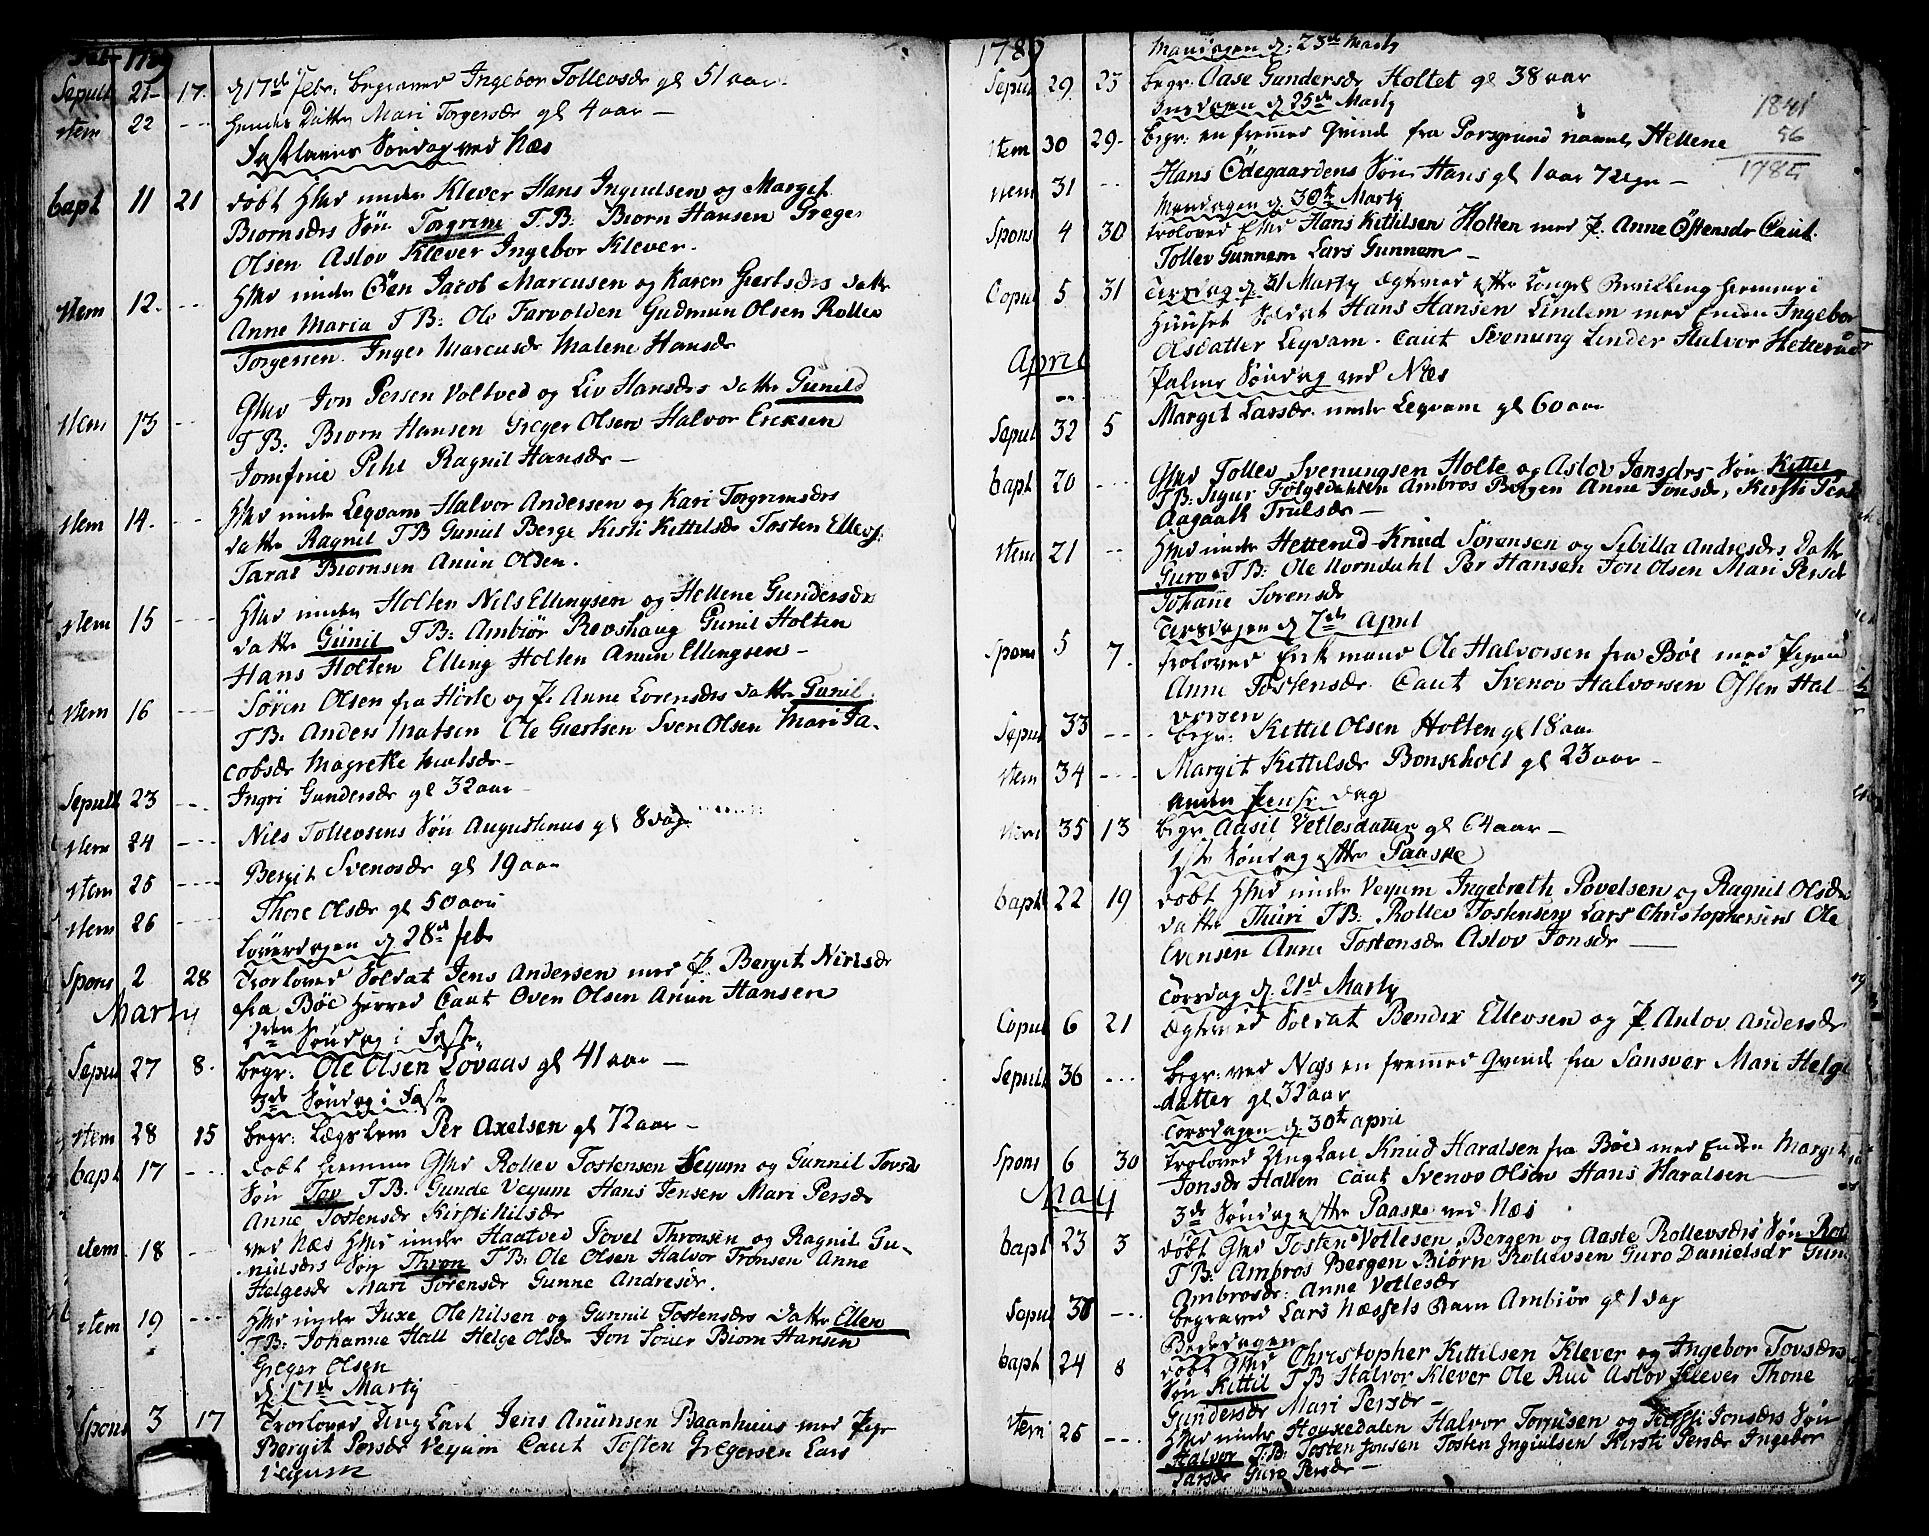 Feb 1789
Sepult 21 17 d 17de febr: begraved Ingebor Tollevsdr gl 51 aar
item 22 --- hendes Datter Mari Torgersdr gl 4 aar —
Fastlavns Søndag ved Næs
bapt 11 21 døbt under Klever Hans Ingiulsen og Margit
Biørnsdrs Søn Torgrim T.B: Biørn Hansen Greger
Olsen Aslov Klever Ingebor Klever.
item 12 --- under Öen Jacob Marcusen og Karen Giertsdrs datter
Anne Maria T.B: Ole Tarvolden Gudmun Olsen Rollev
Torgersen Inger Marcusdr Malene Hansdr
item 13 --- Jon Persen Voltved og Liv Hansdrs datter Gunild
T.B: Biørn Hansen Greger Olsen Halvor Ericksen
Jomfrue Pihl Ragnil Hansdr —
item 14 --- under Legvam Halvor Andersen og Kari Torgrimsdrs
datter Ragnil T.B Gunil Berge Kirsti Kittilsdr Tosten Ellevs:
Taral Biørnsen Anun Olsen.
item 15 --- under Holten Nils Ellingsen og Hellene Gundersdrs
datter Gunil T.B: Ambiør Revshaug Gunil Holten
Hans Holten Elling Holten Anun Ellingsen —
item 16 --- Søren Olsen fra Hørte og P. Anne Lorensdrs datter Gunil
T.B: Anders Matsen Ole Giertsen Sven Olsen Mari Ja-
cobsdr Magrethe
Sepult 23 --- Ingri Gundersdr gl 32 aar —
item 24 --- Nils Tollevsens Søn Augustinus gl 8 dage
item 25 --- Bergit Svenosdr gl 19 aar
item 26 --- Thore Olsdr gl 50 aar
Løverdagen d 28de feb
Spons 2 28 Trolovet Soldat Jens Andersen med P. Bergit Nirisdr
fra Bøe Herred Caut Even Olsen Anun Hansen
Marty
2den Søndag i Faste
Sepult 27 8 begr: Ole Olsen Lovaas gl 41 aar —
3de Søndag i Faste
item 28 15 begr: Lægslem Per Axelsen gl 72 aar —
bapt 17 --- døbt hiemme Rollev Tostensen Veyum og Gunnil Tovsdrs
Søn Tov T.B. Gunde Veyum Hans Jensen Mari Persdr
Anne Tostensdr Kirsti Nilsdr
item 18 --- ved Næs under Haatved Povel Thronsen og Ragnil Gu-
nulsdrs Søn Thron T.B: Ole Olsen Halvor Tronsen Anne
Helgesdr Mari Sørensdr Gunne Andresdr.
item 19 --- under Juxe Ole Nilsen og Gunnil Tostensdrs datter Ellen
T.B: Johanne Hall Helge Olsdr Jon Biørn Hansen
Greger Olsen
d. 17de Marty
Spons 3 17 Trolovet Ung Karl Jens Anunsen Baanhuus med Pige
Bergit Persdr Veyum Caut Tosten Gregersen Lars
Veyum
1789
Mandagen d. 23de Marty
Sepult 29 23 begr: Aase Gundersdr Holtet gl 38 aar
Onsdagen d 25de Marty
item 30 29 begr: en fremmed Qvinde fra Porsgrund navnl. Hellene
1841
56
1785
item 31 --- Hans Ödegaardens Søn Hans gl 1 aar 7 uger —
Mandagen d. 30te Marty
Spons 4 30 trolovet Hans Kittilsen Holten med P. Anne Östensdr Caut.
Tollev Gunnem Lars Gunnem —
Copul 5 31 Tirsdag d 31 Marty ægteviet efter Kongel Bevilling hiemme i
Huuset Soldat Hans Hansen Lindem med Enken Ingebor
Olsdatter Legvam. Caut Svenung Linder Halvor Hetterud
April
Palme Søndag ved Næs
Sepult 32 5 Margit Larsdr under Legvam gl 60 aar
bapt 20 --- Tollev Svenungsen Holte og Aslov Jonsdrs Søn Kittel
T.B: Sigur Følgedahlen Ambros Bergen Anne Jonsdr, Kirsti
Aagaath Trulsdr —
item 21 --- under Hetterud Knud Sørensen og Sibilla Andresdrs datter
Guro T.B: Ole Norndahl Per Hansen Jon Olsen Mari Persdr
Johanne Sørensdr
Tirsdagen d 7de April
Spons 5 7 trolovet Enkemand Ole Halvorsen fra Bøe med Pigen
Anne Tostensdr Caut Svenov Halvorsen Østen Hal-
vorsen
Sepul 33 --- begr: Kettil Olsen Holten gl 18 aar
item 34 --- Margit Kittilsdr Bonseholt gl 23 aar —
Anden dag
item 35 13 begr. Aasil Vetlesdatter gl 64 aar —
1ste Søndag efter Paaske
bapt 22 19 døbt under Veyum Ingebreth Povelsen og Ragnil Olsdrs
datter Thuri T.B: Rollev Tostensen Lars Christophersens Ole
Evensen Anne Tostensdr Aslov Jonsdr —
Torsdag d: 21de Marty
Copul 6 21 Ægteviet Soldat Bendix Ellevsen og P. Aslov Andersdr
Sepult 36 --- begr: ved Næs en fremmed Qvinde fra Sansver Mari Helge
datter gl 32 aar
Torsdagen d 30te april
Spons 6 30 trolovet Ung Karl Knud Haralsen fra Bøe med Enken Margit
Jonsdr Halten Caut Svenov Olsen Hans Haralsen
May
3de Søndag efter Paaske ved Næs
bapt 23 3 døbt Tosten Vetlesen Bergen og Aaste Rollevsdrs Søn
T.B: Ambros Bergen Biørn Rollevsen Guro Danielsdr
Ambrosdr: Anne Vetlesdr
Sepult --- begravet Lars Næssets Barn Ambiør gl 1 dag
Bededagen
bapt 24 8 døbt Christopher Kittilsen Klever og Ingebor Tovsdrs
Søn Kittil T.B Halvor Klever Ole Rui Aslov Klever Thone
Gundersdr Mari Persdr —
item 25 --- under Houxedalen Halvor og Kirsti Jonsdrs Søn
Halvor T.B: Tosten Jonsen Tosten Ingiulsen Kirsti Persdr Ingebor
Larsdr Guro Persdr —